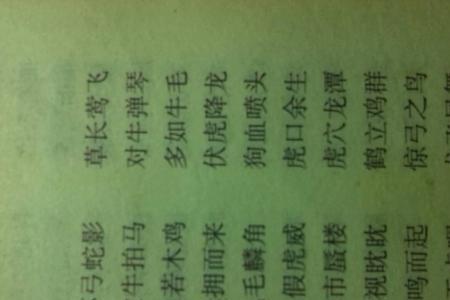 弓蛇影 草长莺飞
牛拍马 对牛弹琴
若木鸡 多如牛毛
拥而来 伏虎降龙
毛麟角 狗血喷头
假虎威 虎口余生
市蜃楼 虎穴龙潭
视眈眈 鹤立鸡群
鸣而起 惊弓之鸟